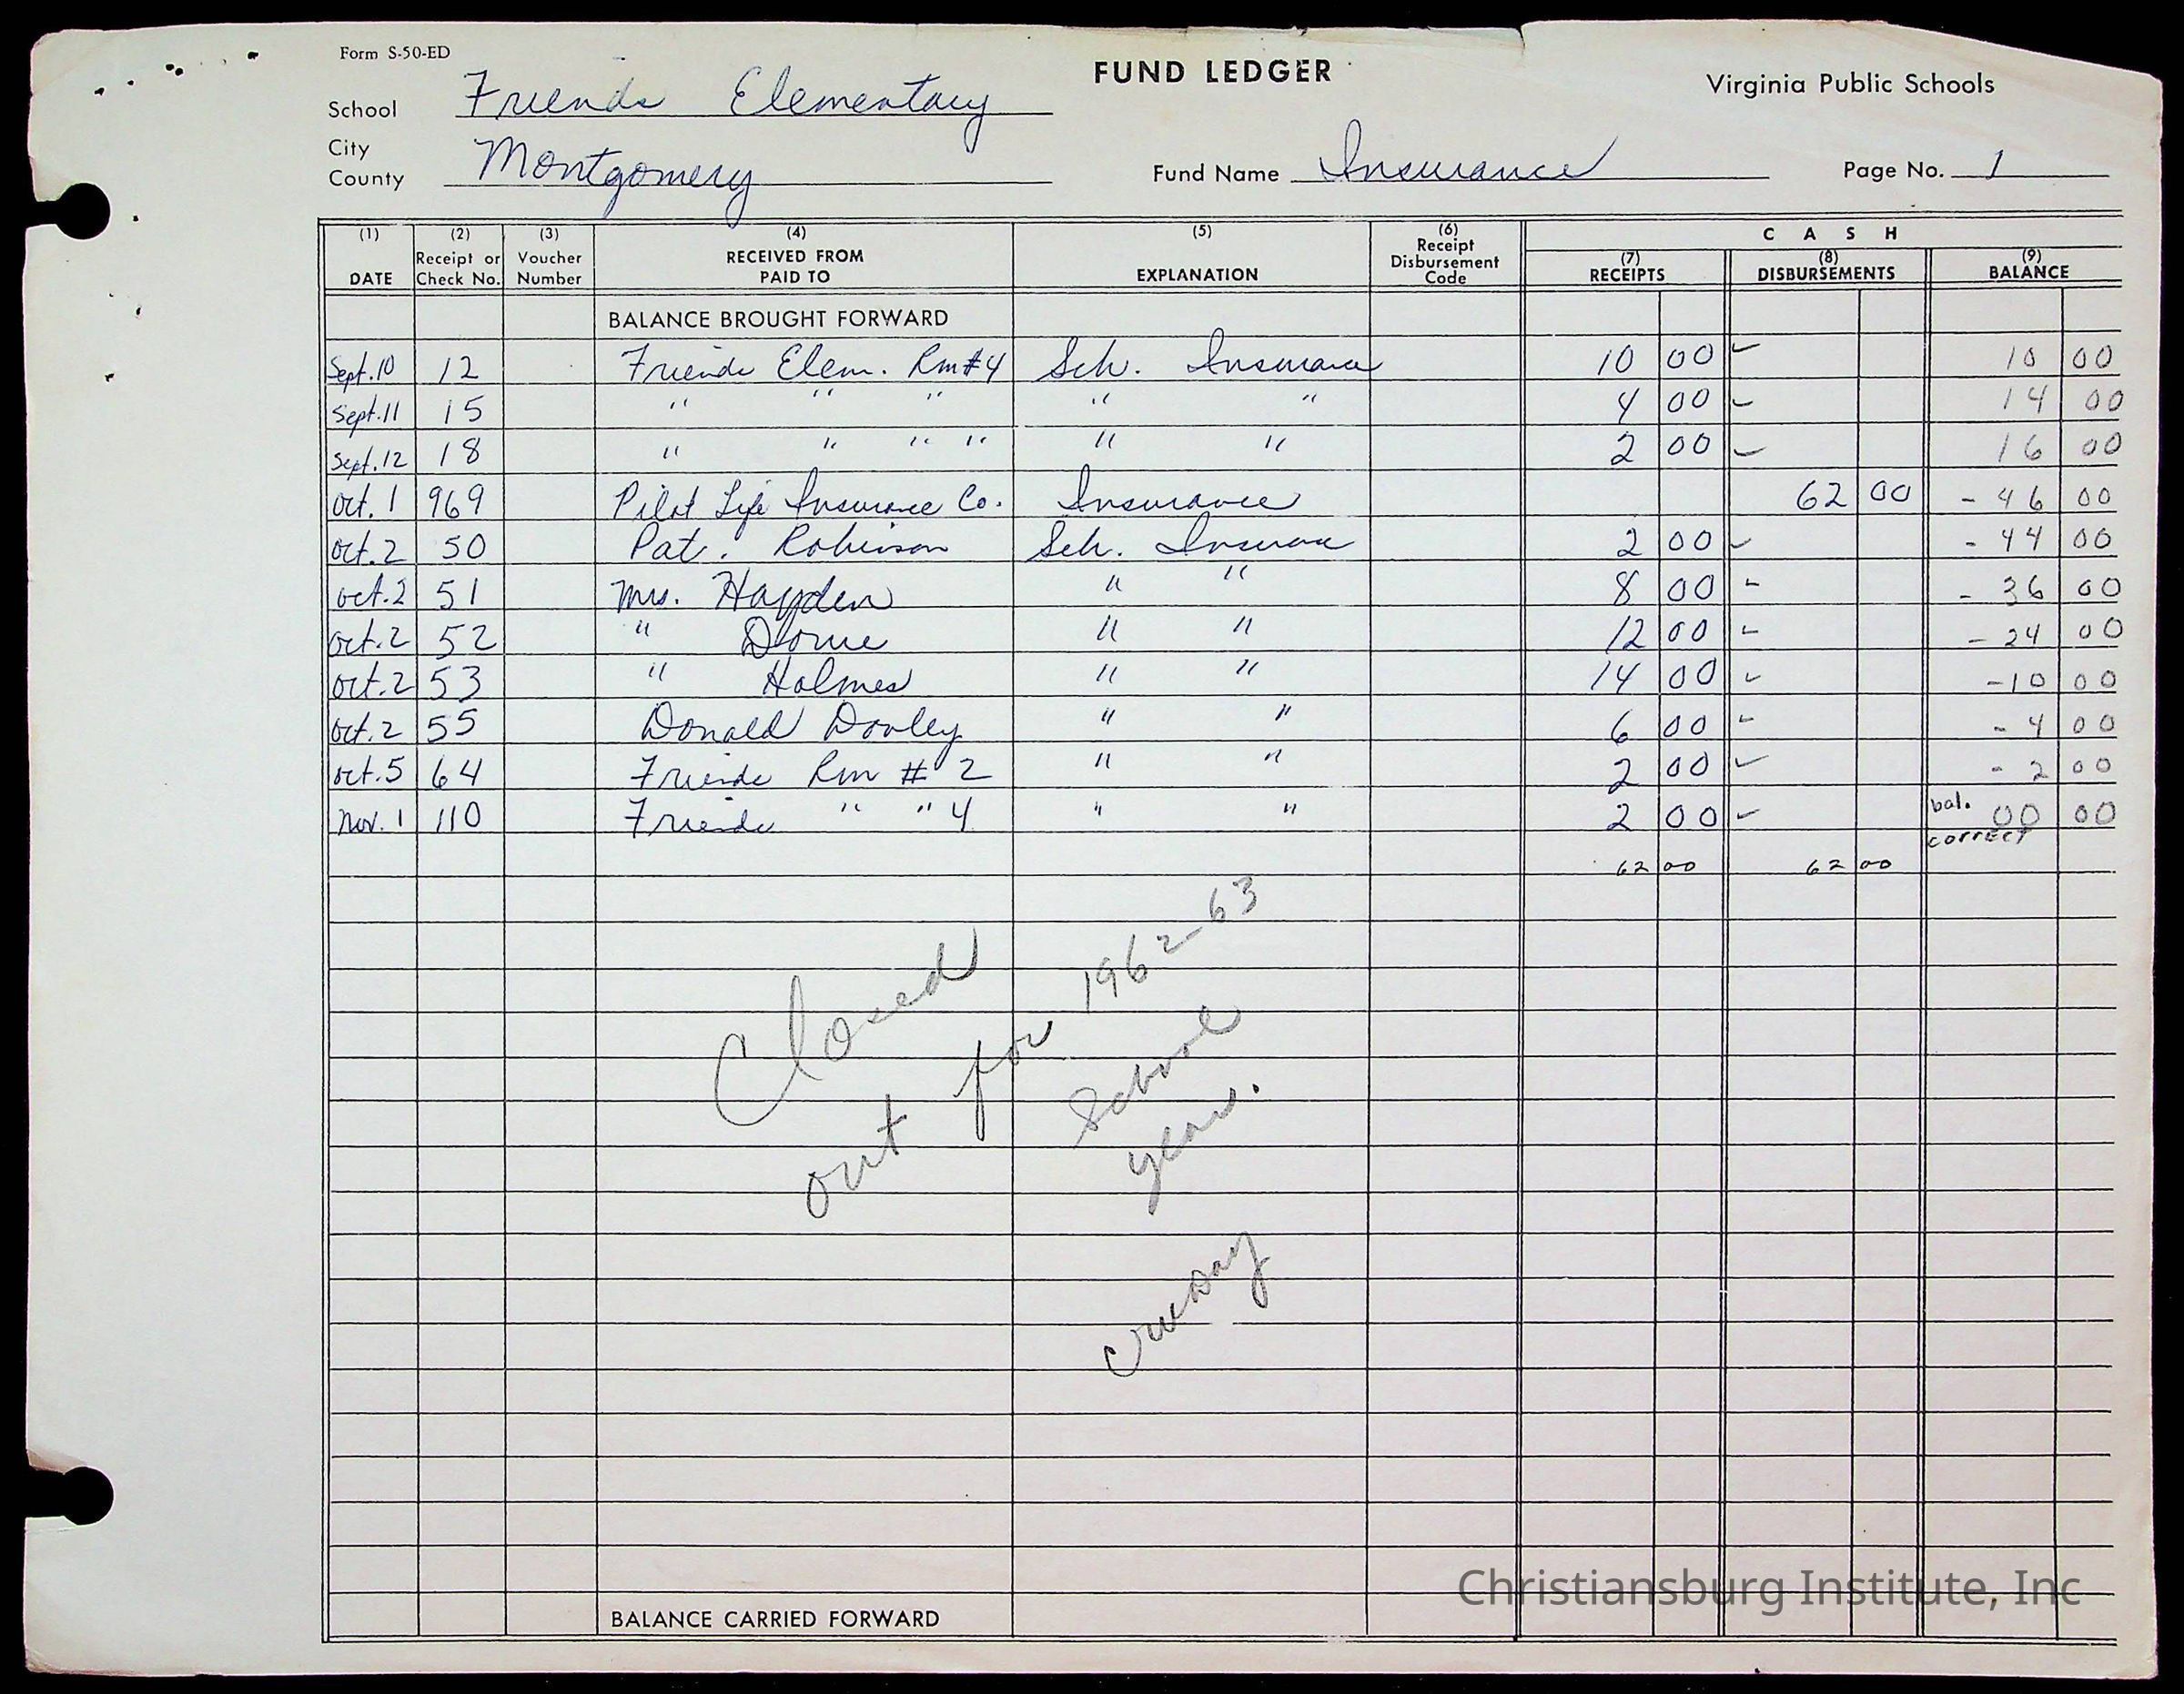 Form S-50-ED
FUND LEDGER
Virginia Public Schools
School Friends Elementary
City
County Montgomery
Fund Name Insurance
Page No. 1
(1) DATE (2) Receipt or Check No. (3) Voucher Number (4) RECEIVED FROM PAID TO (5) EXPLANATION (6) Receipt Disbursement Code CASH (7) RECEIPTS (8) DISBURSEMENTS (9) BALANCE
BALANCE BROUGHT FORWARD
Sept. 10 12 Friends Elem. Rm #4 Sch. Insurance 10 00 ✓ 10 00
Sept. 11 15 " " " " " 4 00 ✓ 14 00
Sept. 12 18 " " " " " " 2 00 ✓ 16 00
Oct. 1 969 Pilot Life Insurance Co. Insurance 62 00 - 46 00
Oct. 2 50 Pat. Robinson Sch. Insurance 2 00 ✓ - 44 00
Oct. 2 51 Mrs. Hayden " " 8 00 ✓ - 36 00
Oct. 2 52 " " " 12 00 ✓ - 24 00
Oct. 2 53 " Holmes " " 14 00 ✓ -10 00
Oct. 2 55 Donald Dooley " " 6 00 ✓ - 4 00
Oct. 5 64 Friends Rm # 2 " " 2 00 ✓ - 2 00
Nov. 1 110 Friends " " 4 " " 2 00 ✓ bal. 00 00
correct
62 00 62 00
Closed
out for 1962-63
School
year.
BALANCE CARRIED FORWARD
Christiansburg Institute, Inc